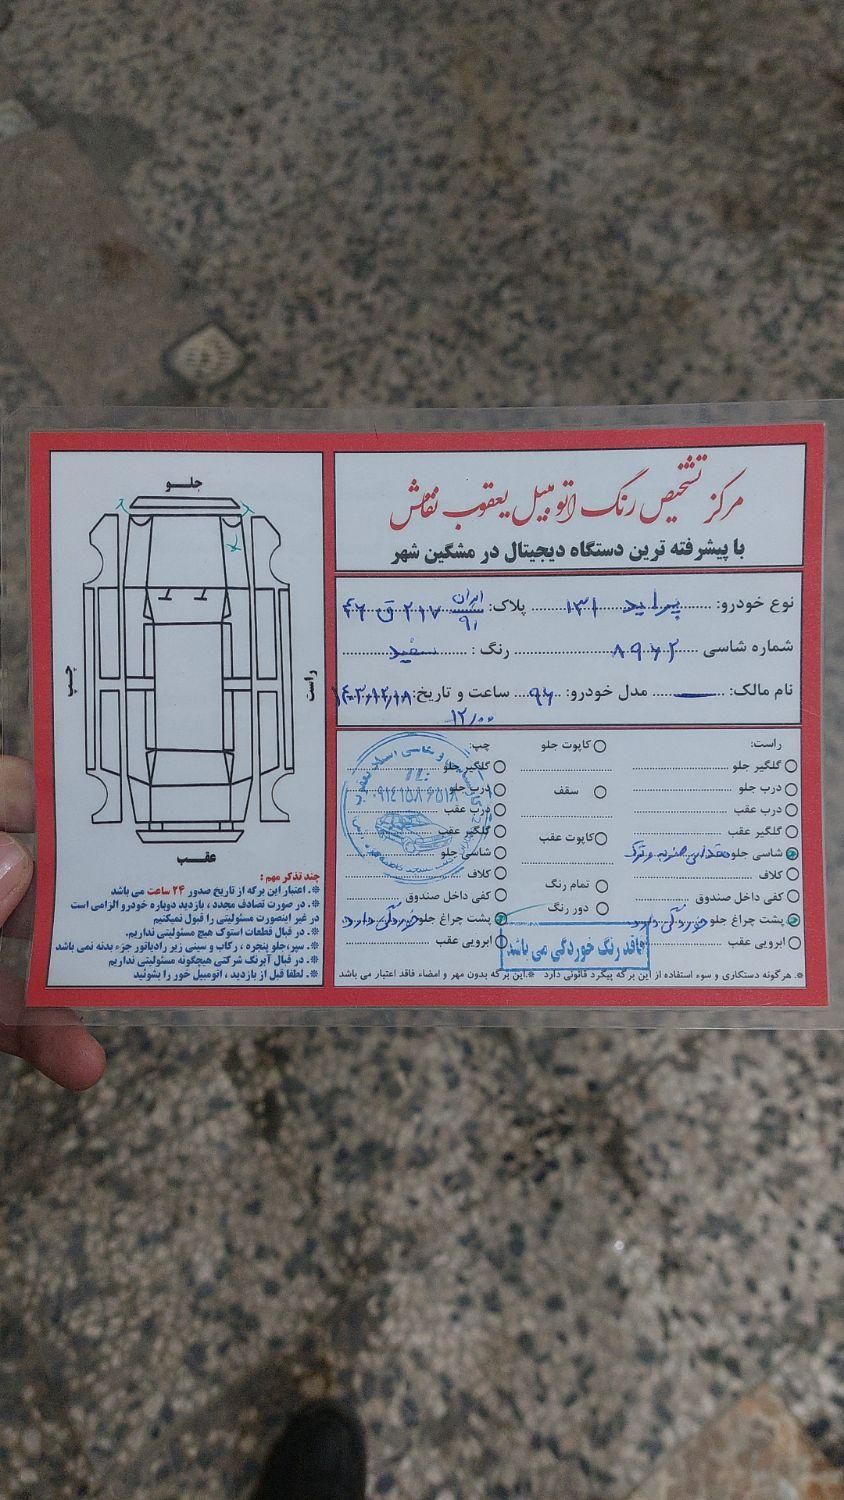 مرکز تشخیص رنگ اتومبیل یعقوب نقاش
با پیشرفته ترین دستگاه دیجیتال در مشگین شهر
نوع خودرو: پراید ۱۳۱ پلاک: ایران ۹۱ ۲۱۷ ق ۴۶
شماره شاسی ۸۹۶۲ رنگ: سفید
نام مالک: مدل خودرو: ۹۶ ساعت و تاریخ: ۱۴۰۳/۱۲/۱۸
۱۲/۰۰
راست:
گلگیر جلو
درب جلو
درب عقب
گلگیر عقب
شاسی جلو مقداری ضربه و ترک
کلاف
کفی داخل صندوق
پشت چراغ جلو خوردگی دارد
ابرویی عقب
کاپوت جلو
سقف
کاپوت عقب
تمام رنگ
دور رنگ
چپ:
گلگیر جلو
درب جلو
درب عقب
گلگیر عقب
شاسی جلو
کلاف
کفی داخل صندوق
پشت چراغ جلو خوردگی دارد
ابرویی عقب
۰۹۱۴۱۵۸۶۵۱۸
فاقد رنگ خوردگی می باشد
※. هرگونه دستکاری و سوء استفاده از این برگه پیگرد قانونی دارد ※.این برگه بدون مهر و امضاء فاقد اعتبار می باشد
جلو
چپ
راست
عقب
چند تذکر مهم :
※. اعتبار این برگه از تاریخ صدور ۲۴ ساعت می باشد
※. در صورت تصادف مجدد ، بازدید دوباره خودرو الزامی است
در غیر اینصورت مسئولیتی را قبول نمیکنیم
※. در قبال قطعات استوک هیچ مسئولیتی نداریم.
※. سپر،جلو پنجره ، رکاب و سینی زیر رادیاتور جزء بدنه نمی باشد
※. در قبال آبرنگ شرکتی هیچگونه مسئولیتی نداریم
※. لطفا قبل از بازدید ، اتومبیل خور را بشوئید